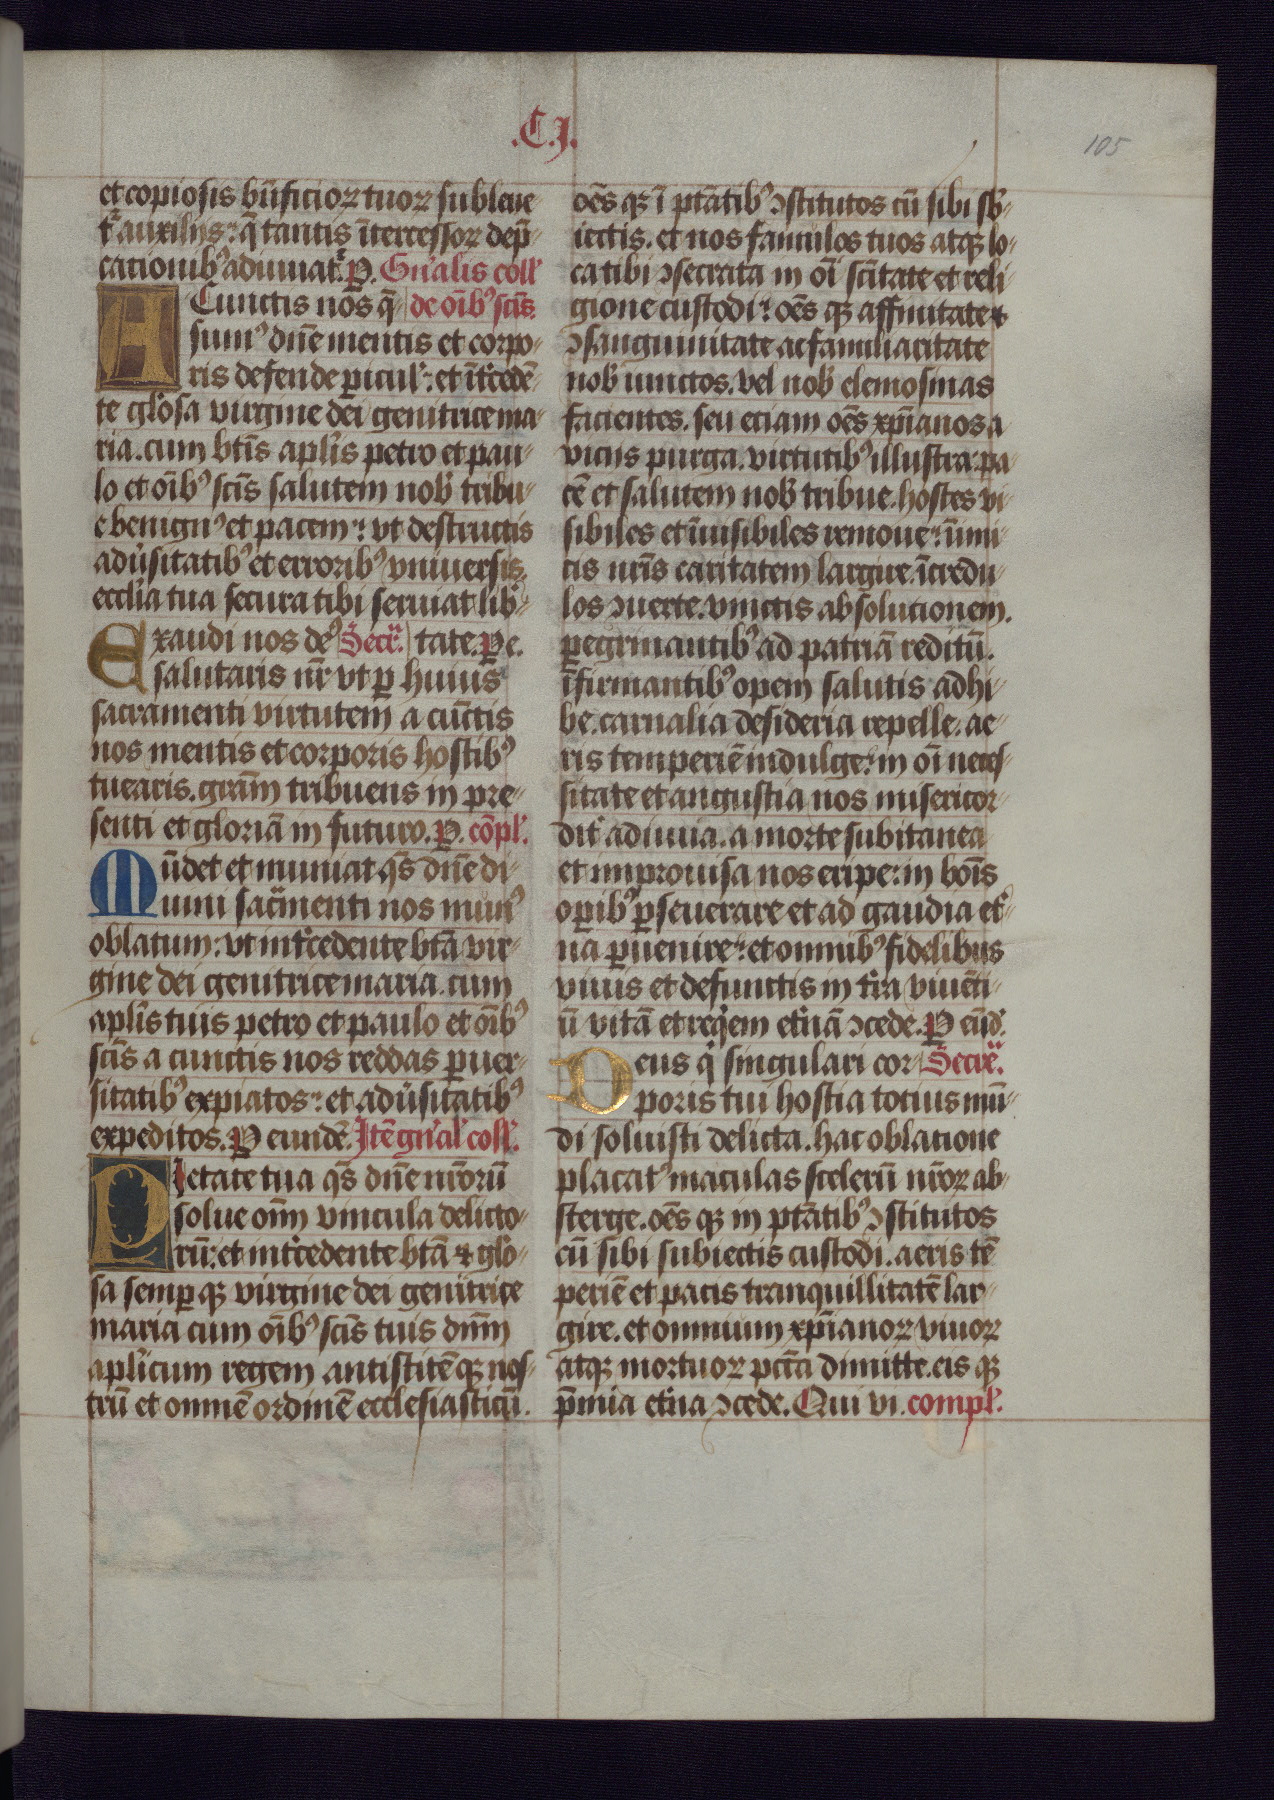 .C.I.
105
et copiosis bn̄ficioꝝ tuoꝝ subleue
t᷑ auxilijs: q̄ tantis īt̾cessoꝝ dep̄-
cationib⁹ adiuuat᷑. P. Gn̄alis coll̾
A Cunctis nos q̄- de oīb⁹ sc̄is.
sum⁹ dn̄e mentis et corpo-
ris defende ꝑicul̾: et īt̾cedē-
te gl̾osa virgine dei genitrice ma-
ria. cum bt̄is apl̾is petro et pau-
lo et oīb⁹ sc̄is salutem nob̾ tribu-
e benign⁹ et pacem: vt destructis
adu̾sitatib⁹ et erroribꝰ vniuersis.
eccl̾ia tua secura tibi seruiat lib̾-
Exaudi nos de⁹ Secr̾. tate. Pe.
salutaris nr̄ vt ꝑ huius
sacramenti virtutem a cūctis
nos mentis et corporis hostib⁹
tuearis. grām tribuens in pre-
senti et gloriā in futuro. P. cōpl̾.
Mūdet et muniat q̄s dn̄e di-
uini sac̄menti nos mun⁹
oblatum: vt int̾cedente bt̄a vir-
gine dei genitrice maria. cum
apl̾is tuis petro et paulo et oīb⁹
sc̄is a cunctis nos reddas ꝑuer-
sitatib⁹ expiatos: et adu̾sitatib⁹
expeditos. P eundē. Itē gn̄al̾ coll̾.
PIetate tua q̄s dn̄e nr̄orū
solue om̄ vincula delicto-
rū: et int̾cedente bt̄a ⁊ gl̾o-
sa semꝑ qꝫ virgine dei genitrice
maria cum oīb⁹ sc̄is tuis dn̄m
apl̾icum regem antistitē qꝫ nos-
trū et omnē ordinē ecclesiasticū.
oēs qꝫ ī ptātib⁹ ꝯstitutos cū sibi sb̾-
iectis. et nos famulos tuos atqꝫ lo-
ca tibi ꝯsecrata in oī sc̄itate et reli-
gione custodi: oēs qꝫ affinitate ⁊
ꝯsanguinitate ac familiaritate
nob̾ iunctos. vel nob̾ elemosinas
facientes. seu eciam oēs xp̄ianos a
vicijs purga. virtutib⁹ illustra. pa-
cē et salutem nob̾ tribue. hostes vi-
sibiles et īuisibiles remoue: inimi-
cis nr̄is caritatem largire. īcredu-
los ꝯuerte. vinctis absolutionem.
ꝑegrinantib⁹ ad patriā reditū.
īfirmantib⁹ opem salutis adhi-
be. carnalia desideria repelle. ae-
ris temperiē indulge: in oī neces-
sitate et angustia nos misericor-
dit̾ adiuua. a morte subitanea
et improuisa nos eripe: in bōis
oꝑib⁹ ꝑseuerare et ad gaudia et̾-
na ꝑuenire: et omnib⁹ fidelibus
viuis et defunctis in t̾ra viuēti-
ū vitā et req̾em et̾nā ꝯcede. P eūd̾.
Deus q̾ singulari cor- Secre̾.
poris tui hostia totius mū-
di soluisti delicta. hac oblatione
placat⁹ maculas scelerū nr̄oꝝ ab-
sterge. oēs qꝫ in ptātib⁹ ꝯstitutos
cū sibi subiectis custodi. aeris tē
periē et pacis tranquillitatē lar-
gire. et omnium xp̄ianoꝝ viuoꝝ
atqꝫ mortuoꝝ pctā dimitte. eis qꝫ
p̄mia et̾na ꝯcede. Qui vi. compl̾.